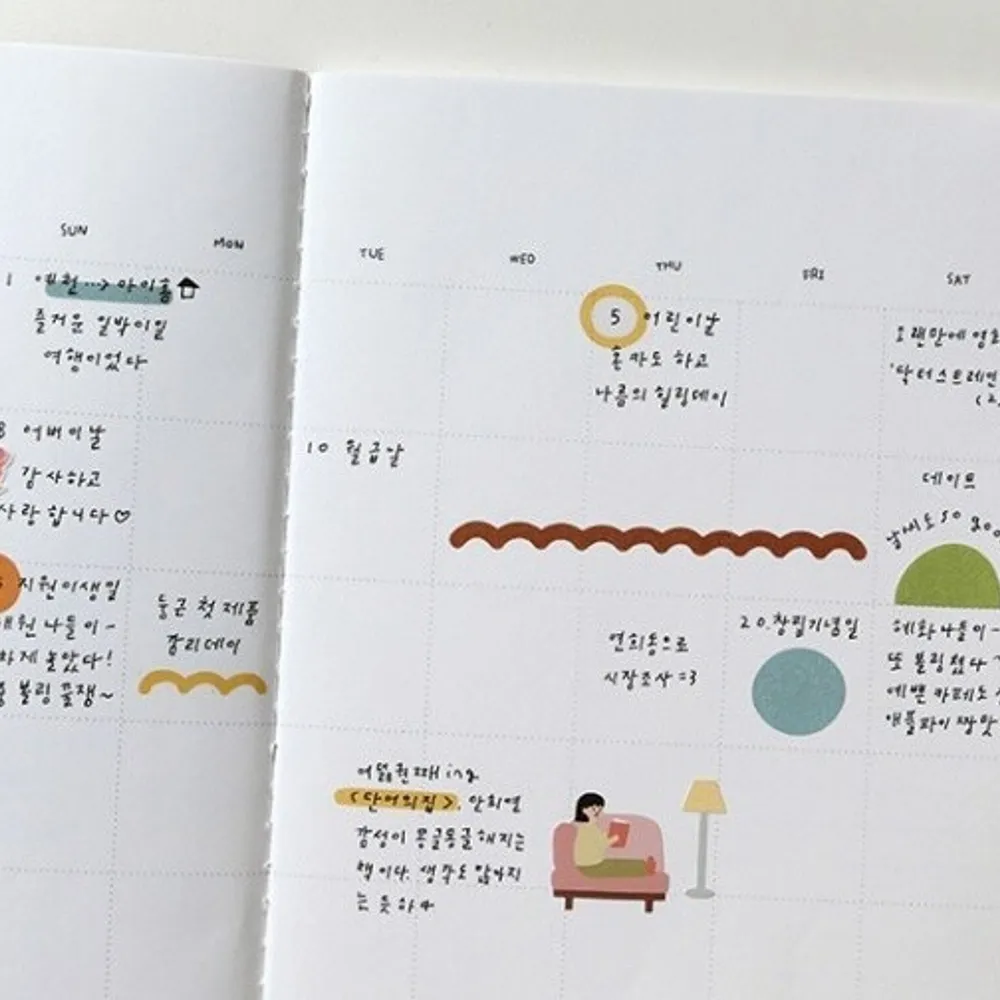 SUN
MON
TUE
WED
THU
FRI
SAT
1 예천 --> 마이홈
즐거운 일박이일
여행이었다
5 어린이날
혼카도 하고
나름의 힐링데이
오랜만에 영화
'닥터스트레인
8 어버이날
감사하고
사랑합니다♡
10 월급날
데이트
날씨도 so
지원이생일
나들이~
하게 놀았다!
볼링 꿀잼~
둥근 첫 제품
감리데이
연희동으로
시장조사 =3
20. 창립기념일
혜화나들이~
또 볼링쳤다
예쁜 카페도
애플파이 짱맛
여덟권째 ing
<단어의집>. 안희연
감성이 몽글몽글해지는
책이다. 생각도 많아지
는 듯하다